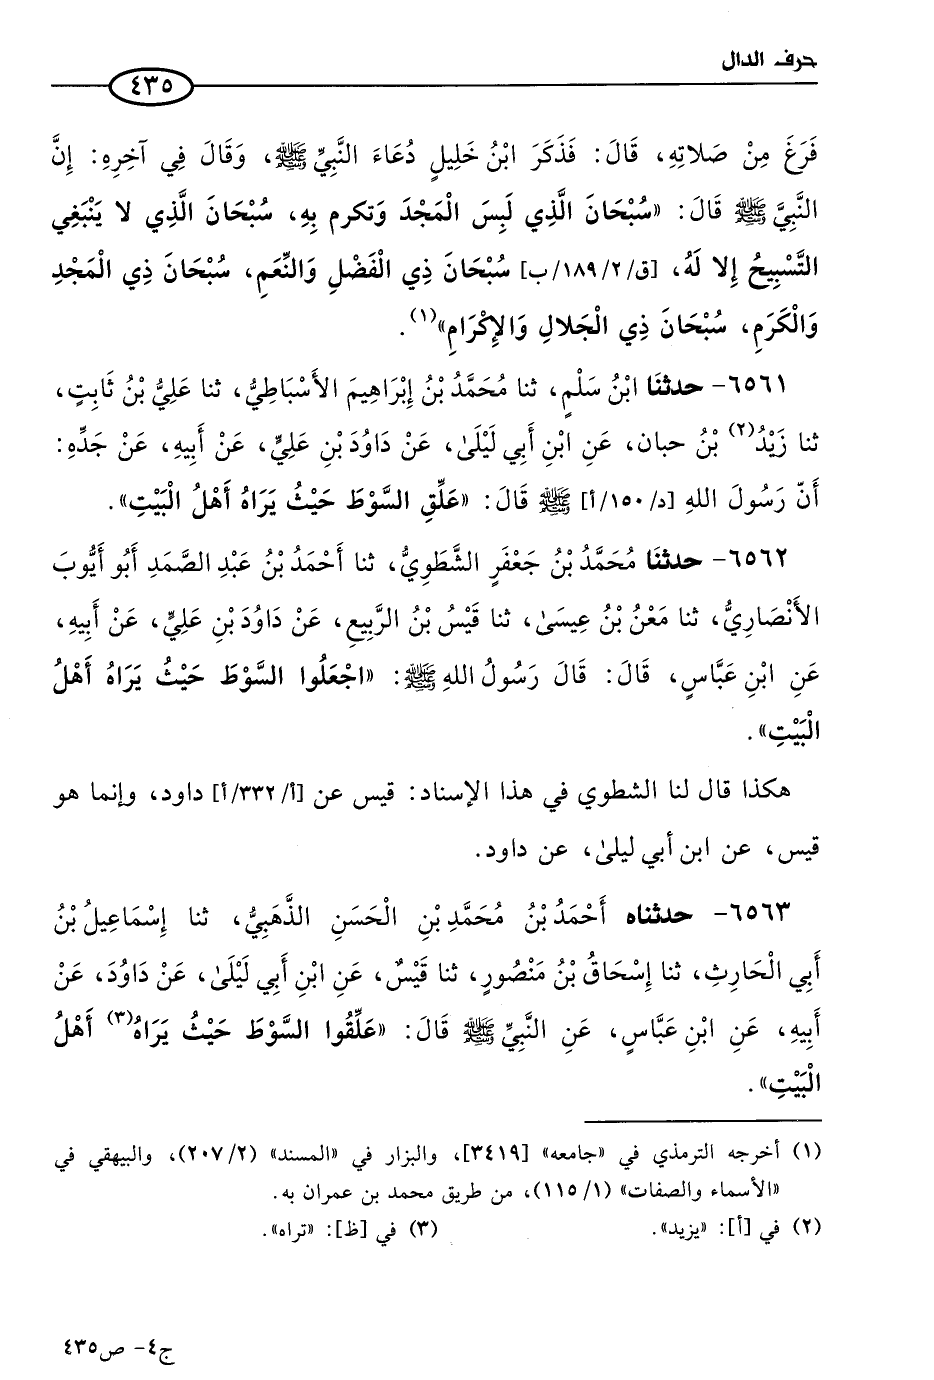 حرف الدال
٤٣٥
فَرَغَ مِنْ صَلاتِهِ، قَالَ: فَذَكَرَ ابْنُ خَلِيلٍ دُعَاءَ النَّبِيِّ ﷺ، وَقَالَ فِي آخِرِهِ: إِنَّ
النَّبِيَّ ﷺ قَالَ: «سُبْحَانَ الَّذِي لَبِسَ الْمَجْدَ وَتكرم بِهِ، سُبْحَانَ الَّذِي لا يَنْبَغِي
التَّسْبِيحُ إِلا لَهُ، [ق/٢/١٨٩/ب] سُبْحَانَ ذِي الْفَضْلِ وَالنِّعَمِ، سُبْحَانَ ذِي الْمَجْدِ
وَالْكَرَمِ، سُبْحَانَ ذِي الْجَلالِ وَالإِكْرَامِ»(١).
٦٥٦١- حدثنَا ابْنُ سَلْمٍ، ثنا مُحَمَّدُ بْنُ إِبْرَاهِيمَ الأَسْبَاطِيُّ، ثنا عَلِيُّ بْنُ ثَابِتٍ،
ثنا زَيْدُ(٢) بْنُ حبان، عَنِ ابْنِ أَبِي لَيْلَىٰ، عَنْ دَاوُدَ بْنِ عَلِيٍّ، عَنْ أَبِيهِ، عَنْ جَدِّهِ:
أَنّ رَسُولَ اللهِ [د/١٥٠/أ] ﷺ قَالَ: «عَلِّقِ السَّوْطَ حَيْثُ يَرَاهُ أَهْلُ الْبَيْتِ».
٦٥٦٢- حدثنَا مُحَمَّدُ بْنُ جَعْفَرٍ الشَّطَوِيُّ، ثنا أَحْمَدُ بْنُ عَبْدِ الصَّمَدِ أَبُو أَيُّوبَ
الأَنْصَارِيُّ، ثنا مَعْنُ بْنُ عِيسَىٰ، ثنا قَيْسُ بْنُ الرَّبِيعِ، عَنْ دَاوُدَ بْنِ عَلِيٍّ، عَنْ أَبِيهِ،
عَنِ ابْنِ عَبَّاسٍ، قَالَ: قَالَ رَسُولُ اللهِ ﷺ: «اجْعَلُوا السَّوْطَ حَيْثُ يَرَاهُ أَهْلُ
الْبَيْتِ».
هكذا قال لنا الشطوي في هذا الإسناد: قيس عن [أ/٣٣٢/أ] داود، وإنما هو
قيس، عن ابن أبي ليلىٰ، عن داود.
٦٥٦٣- حدثناه أَحْمَدُ بْنُ مُحَمَّدِ بْنِ الْحَسَنِ الذَّهَبِيُّ، ثنا إِسْمَاعِيلُ بْنُ
أَبِي الْحَارِثِ، ثنا إِسْحَاقُ بْنُ مَنْصُورٍ، ثنا قَيْسٌ، عَنِ ابْنِ أَبِي لَيْلَىٰ، عَنْ دَاوُدَ، عَنْ
أَبِيهِ، عَنِ ابْنِ عَبَّاسٍ، عَنِ النَّبِيِّ ﷺ قَالَ: «عَلِّقُوا السَّوْطَ حَيْثُ يَرَاهُ(٣) أَهْلُ
الْبَيْتِ».
(١) أخرجه الترمذي في «جامعه» [٣٤١٩]، والبزار في «المسند» (٢/ ٢٠٧)، والبيهقي في
«الأسماء والصفات» (١/ ١١٥)، من طريق محمد بن عمران به.
(٢) في [أ]: «يزيد». (٣) في [ظ]: «تراه».
ج٤- ص٤٣٥